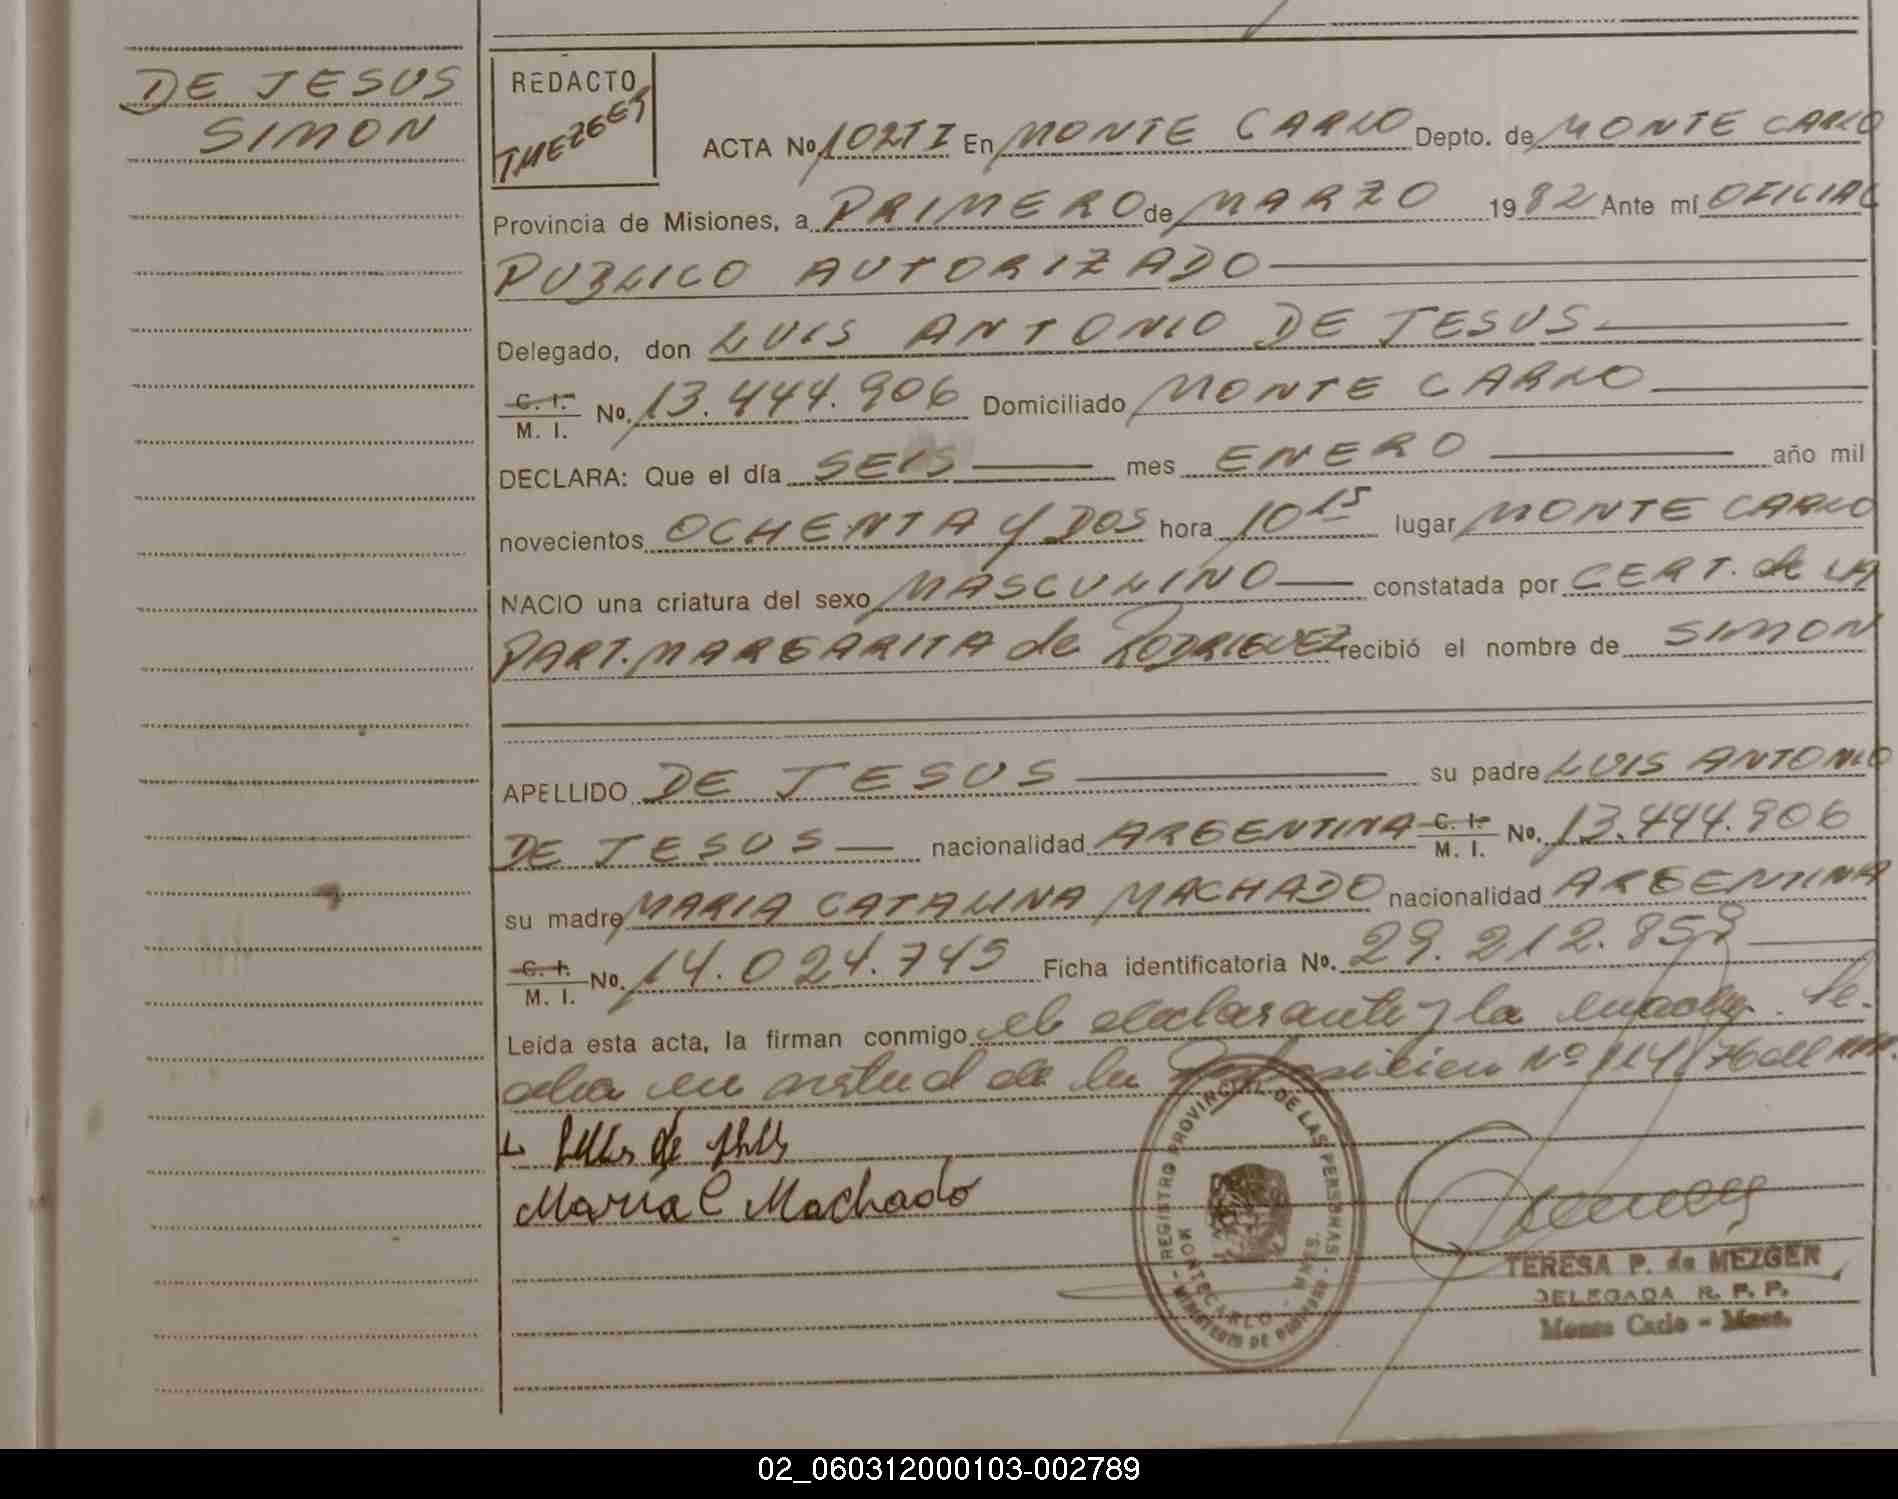 DE JESUS
SIMON
REDACTO
ACTA Nº 102TI En MONTE CARLO Depto. de MONTE CARLO
Provincia de Misiones, a PRIMERO de MARZO 1982 Ante mí OFICIAL
PUBLICO AUTORIZADO
Delegado, don LUIS ANTONIO DE JESUS
C. I. / M. I. Nº. 13.444.906 Domiciliado MONTE CARLO
DECLARA: Que el día SEIS mes ENERO año mil
novecientos OCHENTA y DOS hora 10 15 lugar MONTE CARLO
NACIO una criatura del sexo MASCULINO constatada por CERT. de LA
PART. MARGARITA de RODRIGUEZ recibió el nombre de SIMON
APELLIDO DE JESUS su padre LUIS ANTONIO
DE JESUS nacionalidad ARGENTINA C. I. / M. I. Nº. 13.444.906
su madre MARIA CATALINA MACHADO nacionalidad ARGENTINA
C. I. / M. I. Nº. 14.024.745 Ficha identificatoria Nº. 29.212.858
Leída esta acta, la firman conmigo el declarante y la madre. Se
en virtud de la Nº
Maria C Machado
REGISTRO PROVINCIAL DE LAS PERSONAS
MONTECARLO - MNES.
MINISTERIO DE GOBIERNO
TERESA P. de MEZGER
DELEGADA R. P. P.
Monte Carlo - Mnes.
02_060312000103-002789